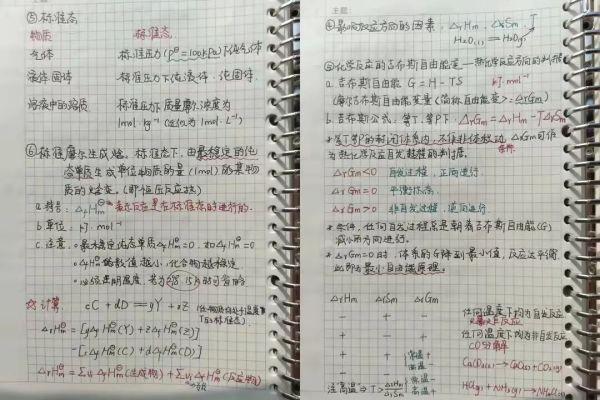 ⑤ 标准态
物质 标准态
气体 标准压力(p^⊖=100kPa)下
液体固体 标准压力下的液体、纯固体.
溶液中的溶质 标准压力下质量摩尔浓度为
1mol·kg⁻¹ (近似为 1mol·L⁻¹)
⑥ 标准摩尔生成焓. 标准态下,由最稳定的
态单质生成单位物质的量(1mol)的某物
质的焓变。(即恒压反应热)
a. 符号: ΔfHm^⊖ 表示反应是在标准态时进行的.
b. 单位: kJ·mol⁻¹
c. 注意: 最稳定纯态单质ΔfHm^⊖=0, 如ΔfHm^⊖=0
ΔfHm^⊖的数值越小,化合物越稳定
☆ 计算 cC + dD = yY + zZ
ΔrHm^⊖ = [yΔfHm^⊖(Y) + zΔfHm^⊖(Z)]
-[cΔfHm^⊖(C) + dΔfHm^⊖(D)]
ΔrHm^⊖ = Σνi ΔfHm^⊖(生成物) + Σνi ΔfHm^⊖(反应物)
主题
④ 影响反应方向的因素, ΔrHm, ΔrSm, T
H₂O(l) ⇌ H₂O(g)
⑤ 化学反应的吉布斯自由能变—热化学反应方向的判据
a. 吉布斯自由能 G = H - TS kJ·mol⁻¹
(摩尔吉布斯自由能变量(简称自由能变): ΔrGm)
b. 吉布斯公式: 等T、等P下, ΔrGm = ΔrHm - TΔrSm
* 等T等P的封闭体系内,不作非体积功, ΔrGm可作
为热化学反应自发过程的判据. 条件.
ΔrGm<0 自发过程,正向进行.
ΔrGm=0 平衡状态
ΔrGm>0 非自发过程,逆向进行.
* 条件,任何自发过程总是朝着吉布斯自由能(G)
减小的方向进行。
* ΔrGm=0时,体系的G降到最小值,反应达平衡.
此即为最小自由能原理.
ΔrHm ΔrSm ΔrGm
- + - 任何温度下均为自发反应
+ - + 任何温度下均为非自发反应
CO分解
+ + 常温+ 高温- CaCO₃(s) → CaO(s) + CO₂(g)
- - 高温+ HCl(g) + NH₃(g) → NH₄Cl(s)
注 高温 ⇒ T > ΔrHm/ΔrSm